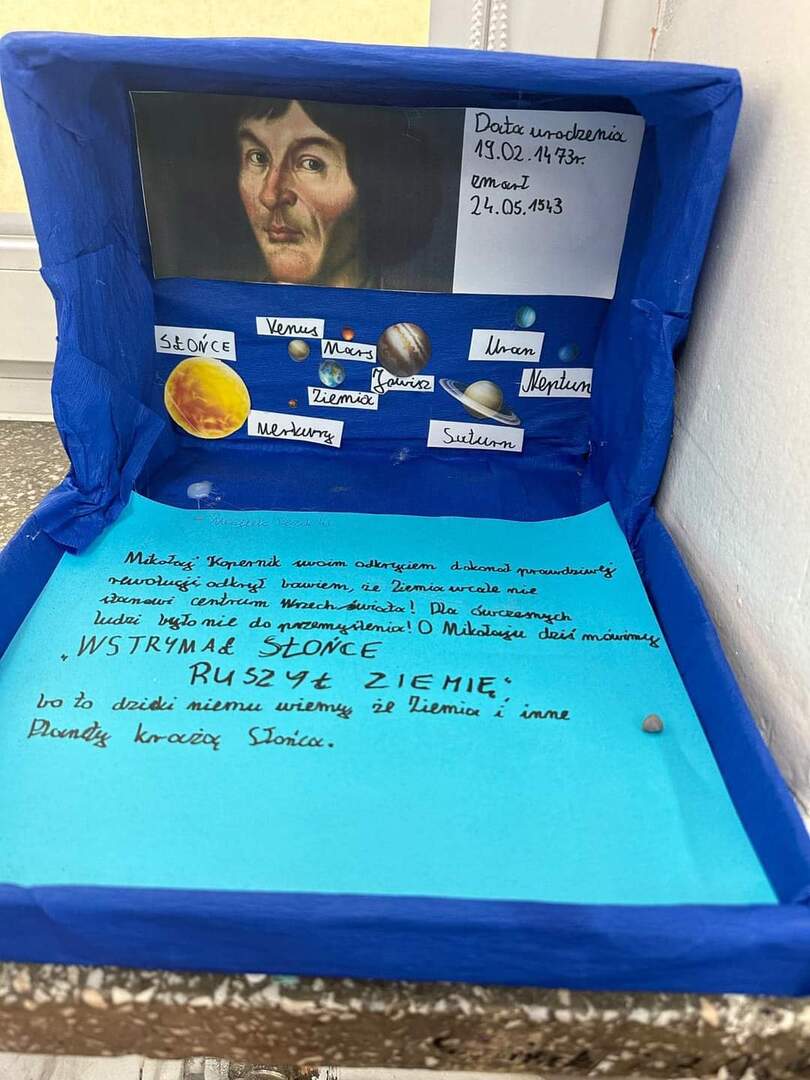 Data urodzenia
19.02.1473r.
zmarł
24.05.1543
SŁOŃCE
Venus
Mars
Ziemia
Merkury
Jowisz
Saturn
Uran
Neptun
Mikołaj Kopernik swoim odkryciem dokonał prawdziwej
rewolucji odkrył bowiem, że Ziemia wcale nie
stanowi centrum Wszechświata! Dla ówczesnych
ludzi było nie do przemyślenia! O Mikołaju dziś mówimy
„WSTRYMAŁ SŁOŃCE
RUSZYŁ ZIEMIĘ“
bo to dzięki niemu wiemy że Ziemia i inne
Planety krążą Słońca.